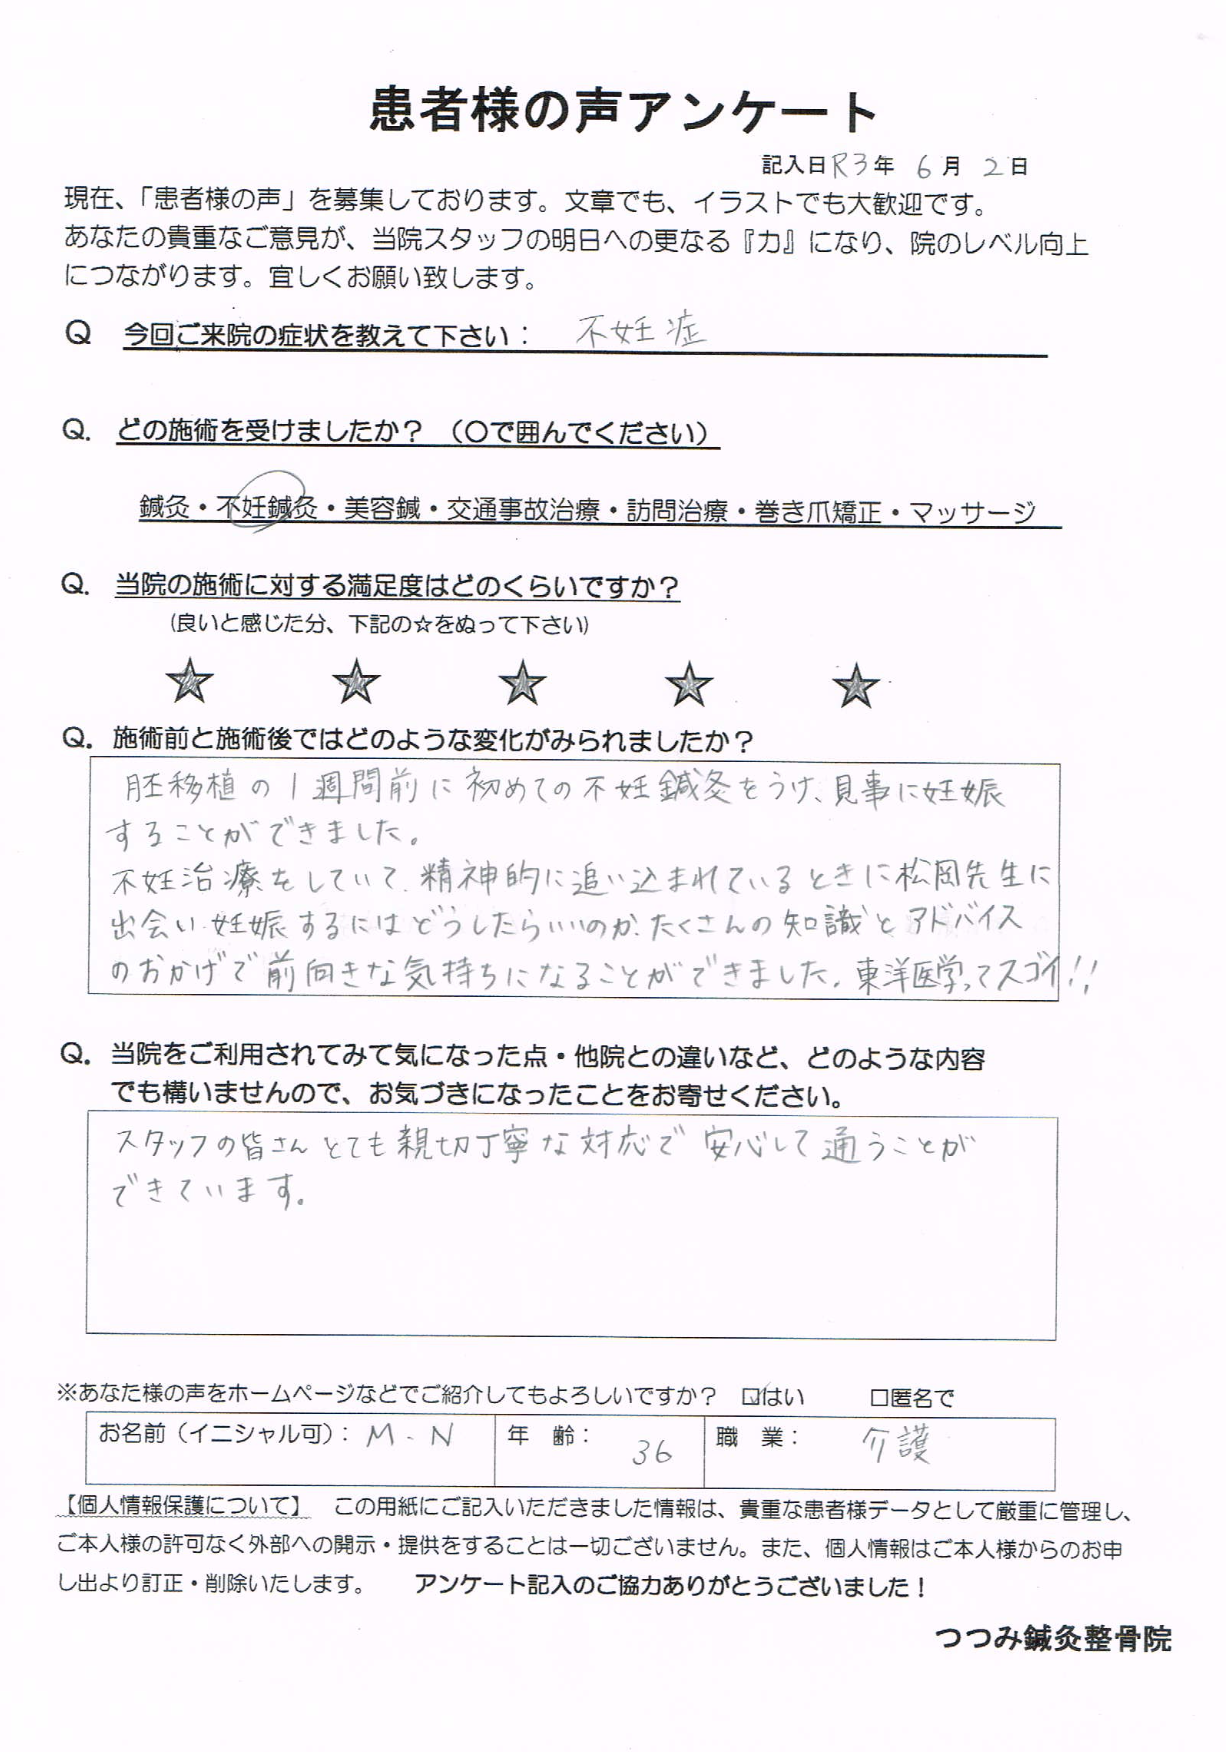 患者様の声アンケート
記入日R3年 6月 2日
現在、「患者様の声」を募集しております。文章でも、イラストでも大歓迎です。
あなたの貴重なご意見が、当院スタッフの明日への更なる『力』になり、院のレベル向上
につながります。宜しくお願い致します。
Q 今回ご来院の症状を教えて下さい： 不妊症
Q. どの施術を受けましたか？ （〇で囲んでください）
鍼灸・不妊鍼灸・美容鍼・交通事故治療・訪問治療・巻き爪矯正・マッサージ
Q. 当院の施術に対する満足度はどのくらいですか？
（良いと感じた分、下記の☆をぬって下さい）
★ ★ ★ ★ ★
Q. 施術前と施術後ではどのような変化がみられましたか？
胚移植の1週間前に初めての不妊鍼灸をうけ、見事に妊娠
することができました。
不妊治療をしていて、精神的に追い込まれているときに松岡先生に
出会い、妊娠するにはどうしたらいいのか、たくさんの知識とアドバイス
のおかげで前向きな気持ちになることができました。東洋医学ってスゴイ!!
Q. 当院をご利用されてみて気になった点・他院との違いなど、どのような内容
でも構いませんので、お気づきになったことをお寄せください。
スタッフの皆さんとても親切丁寧な対応で安心して通うことが
できています。
※あなた様の声をホームページなどでご紹介してもよろしいですか？ ☑はい □匿名で
お名前（イニシャル可）： M.N 年 齢： 36 職 業： 介護
【個人情報保護について】 この用紙にご記入いただきました情報は、貴重な患者様データとして厳重に管理し、
ご本人様の許可なく外部への開示・提供をすることは一切ございません。また、個人情報はご本人様からのお申
し出より訂正・削除いたします。 アンケート記入のご協力ありがとうございました！
つつみ鍼灸整骨院